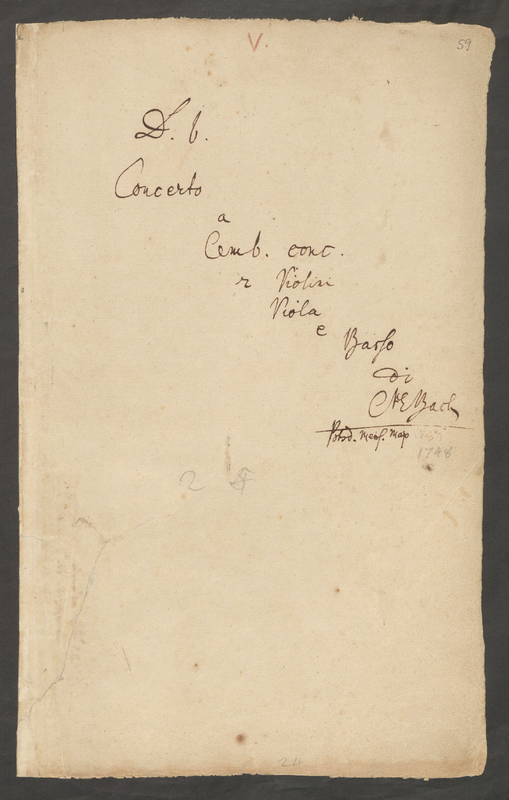 V.
59
D. b.
Concerto
a
Cemb. conc.
2 Violini
Viola
e
Basso
di
CPE Bach
Potsd. Mens.
1748
2
24